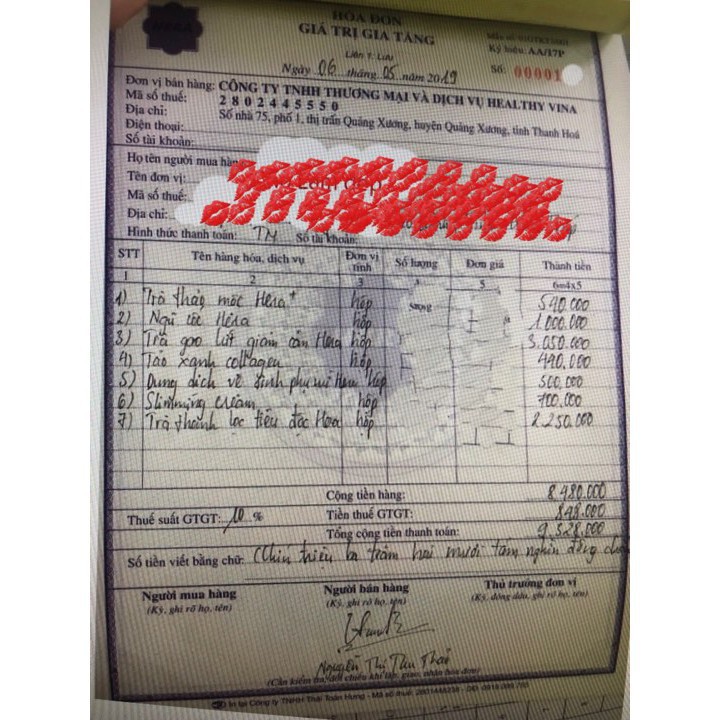 HÓA ĐƠN
GIÁ TRỊ GIA TĂNG
Liên 1: Lưu
Ký hiệu: AA/17P
Ngày 06 tháng 05 năm 2019
Số: 00001
Đơn vị bán hàng: CÔNG TY TNHH THƯƠNG MẠI VÀ DỊCH VỤ HEALTHY VINA
Mã số thuế: 2802445550
Địa chỉ: Số nhà 75, phố 1, thị trấn Quảng Xương, huyện Quảng Xương, tỉnh Thanh Hoá
Điện thoại:
Số tài khoản:
Họ tên người mua hàng
Tên đơn vị:
Mã số thuế:
Địa chỉ:
Hình thức thanh toán: TM Số tài khoản:
STT Tên hàng hóa, dịch vụ Đơn vị tính Số lượng Đơn giá Thành tiền
1 2 3 5 6=4x5
1) Trà thảo mộc Hera+ hộp 590.000
2) Ngũ cốc Hera hộp 1.000.000
3) Trà gạo lứt giảm cân Hera hộp 3.050.000
4) Tảo xanh collagen hộp 490.000
5) Dung dịch vệ sinh phụ nữ Hera hộp 500.000
6) Slimming cream hộp 700.000
7) Trà thanh lọc tiêu độc Hera hộp 2.250.000
Cộng tiền hàng: 8.480.000
Thuế suất GTGT: 10 % Tiền thuế GTGT: 848.000
Tổng cộng tiền thanh toán: 9.328.000
Số tiền viết bằng chữ: Chín triệu ba trăm hai mươi tám nghìn đồng chẵn
Người mua hàng Người bán hàng Thủ trưởng đơn vị
(Ký, ghi rõ họ, tên) (Ký, ghi rõ họ, tên) (Ký, đóng dấu, ghi rõ họ, tên)
Nguyễn Thị Thu Thảo
(Cần kiểm tra, đối chiếu khi lập, giao, nhận hóa đơn)
In tại Công ty TNHH Thái Toàn Hưng - Mã số thuế: 2801448238